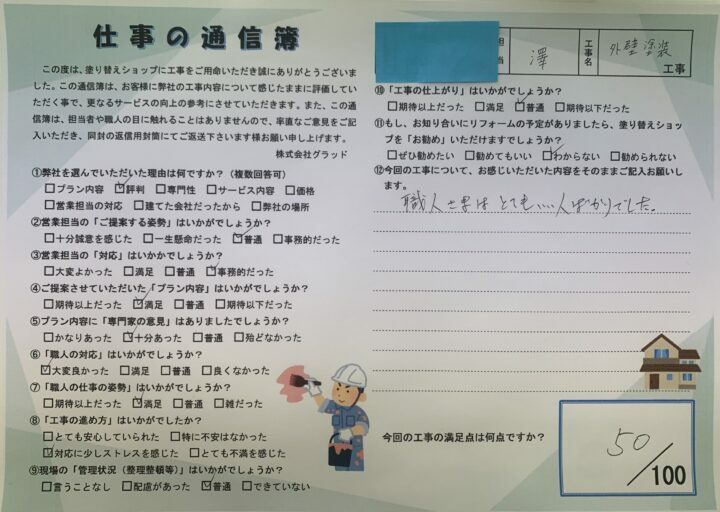 仕事の通信簿
この度は、塗り替えショップに工事をご用命いただき誠にありがとうございま
した。この通信簿は、お客様に弊社の工事内容について感じたままに評価してい
ただく事で、更なるサービスの向上の参考にさせていただきます。また、この通
信簿は、担当者や職人の目に触れることはありませんので、率直なご意見をご記
入いただき、同封の返信用封筒にてご返送下さいます様お願い申し上げます。
株式会社グラッド
①弊社を選んでいただいた理由は何ですか?(複数回答可)
□プラン内容 ☑評判 □専門性 □サービス内容 □価格
□営業担当の対応 □建てた会社だったから □弊社の場所
②営業担当の「ご提案する姿勢」はいかがでしょうか?
□十分誠意を感じた □一生懸命だった ☑普通 □事務的だった
③営業担当の「対応」はいかかでしょうか?
□大変よかった □満足 □普通 ☑事務的だった
④ご提案させていただいた「プラン内容」はいかがでしょうか?
□期待以上だった ☑満足 □普通 □期待以下だった
⑤プラン内容に「専門家の意見」はありましたでしょうか?
□かなりあった ☑十分あった □普通 □殆どなかった
⑥「職人の対応」はいかがでしょうか?
☑大変良かった □満足 □普通 □良くなかった
⑦「職人の仕事の姿勢」はいかがでしょうか?
□期待以上だった ☑満足 □普通 □雑だった
⑧「工事の進め方」はいかがでしたか?
□とても安心していられた □特に不安はなかった
☑対応に少しストレスを感じた □とても不満を感じた
⑨現場の「管理状況(整理整頓等)」はいかがでしょうか?
□言うことなし □配慮があった ☑普通 □できていない
担当 澤 工事名 外壁塗装 工事
⑩「工事の仕上がり」はいかがでしょうか?
□期待以上だった □満足 ☑普通 □期待以下だった
⑪もし、お知り合いにリフォームの予定がありましたら、塗り替えショッ
プを「お勧め」いただけますでしょうか?
□ぜひ勧めたい □勧めてもいい ☑わからない □勧められない
⑫今回の工事について、お感じいただいた内容をそのままご記入お願いし
ます。
職人さん達は とても いい人ばかりでした。
今回の工事の満足点は何点ですか?
50/100